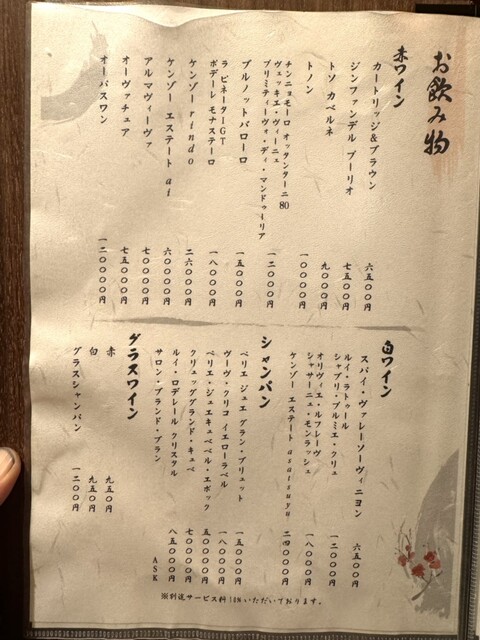 お飲み物
赤ワイン
カートリッジ&ブラウン 六五〇〇円
ジンファンデル プーリオ 七五〇〇円
トソ カベルネ 九〇〇〇円
トノン 一〇〇〇〇円
チンニョモーロ オッタンターニ 80
ヴェッキエ・ヴィーニュ
プリミティーヴォ・ディ・マンドゥーリア 一二〇〇〇円
ブルノットバローロ 一五〇〇〇円
ラ ピネーターGT
ボデーレ モナステーロ 一八〇〇〇円
ケンゾー rindo 二六〇〇〇円
ケンゾー エステート ai 六〇〇〇〇円
アルマヴィーヴァ 七〇〇〇〇円
オーヴァチュア 七五〇〇〇円
オーパスワン 一二〇〇〇〇円
白ワイン
スパイ・ヴァレーソーヴィニヨン 六五〇〇円
ルイ・ラトゥール
シャブリ・プルミエ・クリュ 一二〇〇〇円
オリヴィエ・ルフレーヴ
シャサーニュ・モンラッシェ 一八〇〇〇円
ケンゾー エステート asatsuyu 二四〇〇〇円
シャンパン
ペリエ ジュエ グラン・ブリュット 一五〇〇〇円
ヴーヴ・クリコ イエローラベル 一八〇〇〇円
ペリエ・ジュエキュベベル・エポック 五〇〇〇〇円
クリュッググランド・キュベ 七〇〇〇〇円
ルイ・ロデレール クリスタル 八五〇〇〇円
サロン・ブランド・ブラン ASK
グラスワイン
赤 九五〇円
白 九五〇円
グラスシャンパン 一二〇〇円
※別途サービス料10%いただいております。